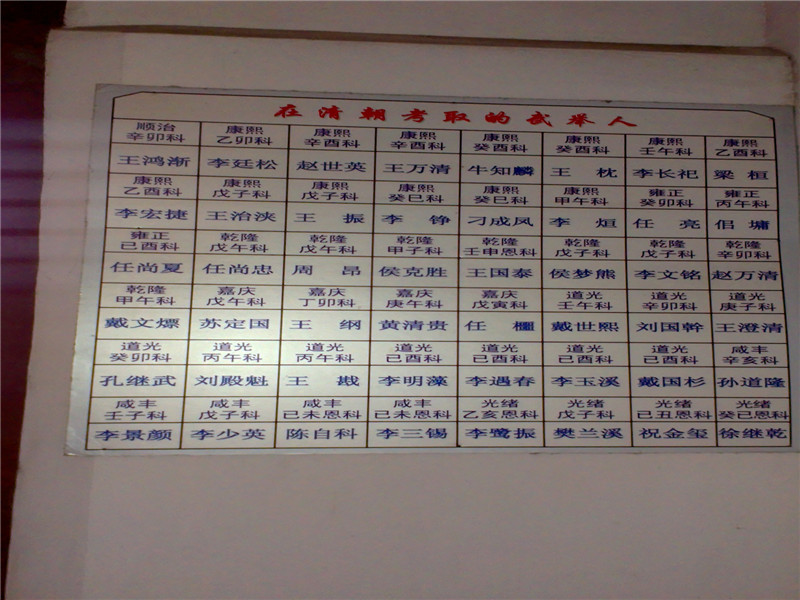 在清朝考取的武举人
顺治 康熙 康熙 康熙 康熙 康熙 康熙 康熙
辛卯科 乙卯科 辛酉科 辛酉科 癸酉科 癸酉科 壬午科 乙酉科
王鸿渐 李廷松 赵世英 王万清 牛知麟 王枕 李长祀 梁桓
康熙 康熙 康熙 康熙 康熙 康熙 雍正 雍正
乙酉科 戊子科 戊子科 癸巳科 癸巳科 甲午科 癸卯科 丙午科
李宏捷 王治浃 王振 李铮 刁成凤 李烜 任亮 佀墉
雍正 乾隆 乾隆 乾隆 乾隆 乾隆 乾隆 乾隆
己酉科 戊午科 戊午科 甲子科 壬申恩科 戊子科 戊子科 辛卯科
任尚夏 任尚忠 周昂 侯克胜 王国泰 侯梦熊 李文铭 赵万清
乾隆 嘉庆 嘉庆 嘉庆 嘉庆 道光 道光 道光
甲午科 戊午科 丁卯科 庚午科 戊寅科 壬午科 辛卯科 庚子科
戴文㷼 苏定国 王纲 黄清贵 任 戴世熙 刘国幹 王澄清
道光 道光 道光 道光 道光 道光 道光 咸丰
癸卯科 丙午科 丙午科 己酉科 己酉科 己酉科 己酉科 辛亥科
孔继武 刘殿魁 王戡 李明藻 李遇春 李玉溪 戴国杉 孙道隆
咸丰 咸丰 咸丰 咸丰 光绪 光绪 光绪 光绪
壬子科 戊子科 己未恩科 己未恩科 乙亥恩科 戊子科 己丑恩科 癸巳恩科
李景颜 李少英 陈自科 李三锡 李鹭振 樊兰溪 祝金玺 徐继乾